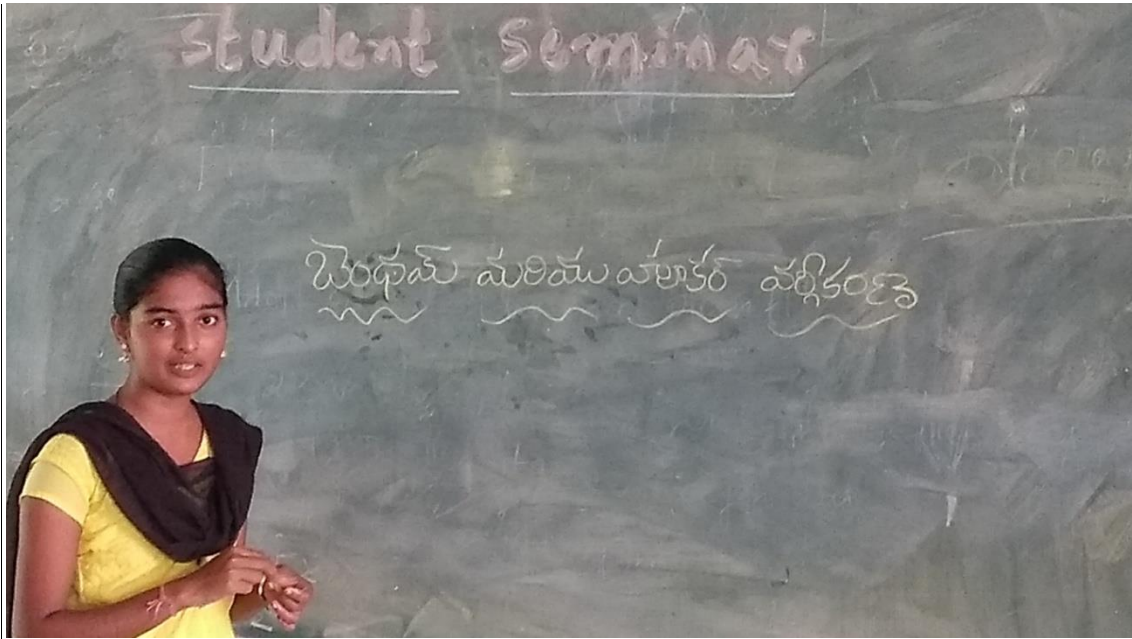 Student Seminar
బెంథమ్ మరియు హుకర్ వర్గీకరణ